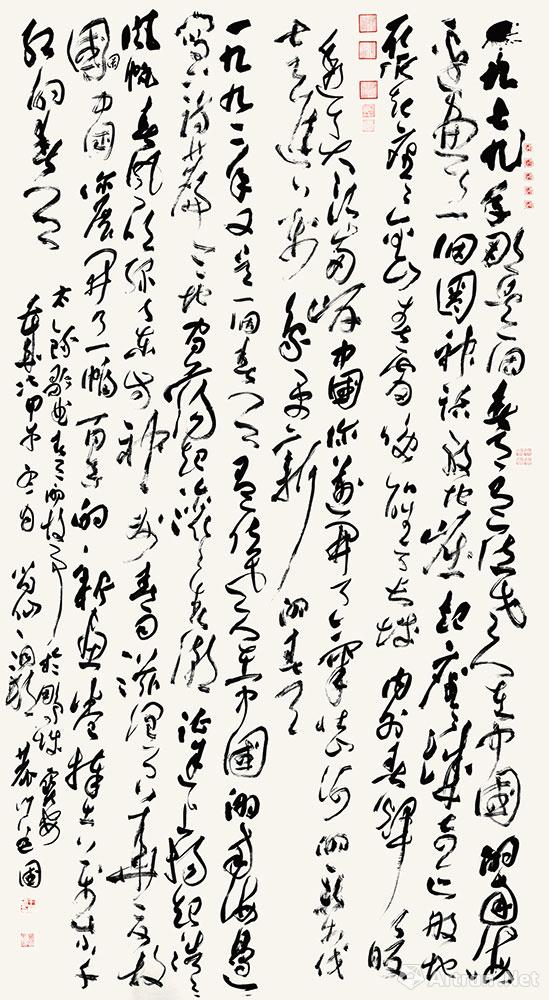 一九七九年那是一個春天有一位老人在中國的南海
邊画了一個圈神話般地崛起座座城奇迹般地
聚起座座金山春雷唤醒了长城内外春晖暖
透了大江两岸中國你迈开了气壮山河的新步伐
走進万象更新的春天
一九九二年又是一個春天有一位老人在中國的南海邊
写下诗篇天地间荡起滚滚春潮征途上扬起浩浩
风帆春风吹绿了东方神州春雨滋润了華夏故
園中國你展开了一幅百年的新画卷捧出万紫千
红的春天
歌曲春天的故事
甲午
Artron.Net